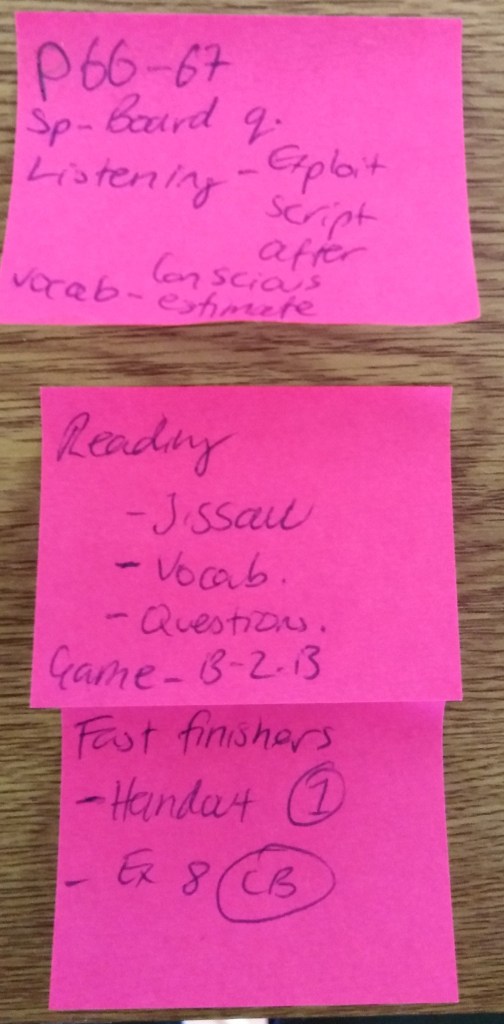 P66-67
Sp- Board q.
Listening - Exploit
script
after
Vocab- Conscious
estimate
Reading
- Jissaw
- Vocab.
- Questions.
Game - B-2-B
Fast finishers
- Handout 1
- Ex 8 CB